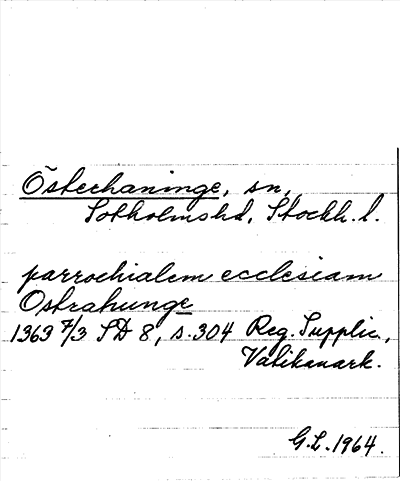 Österhaninge, sn,
Sotholmshd, Stockh. l.
parrochialem ecclesiam
Ostrahunge
1363 7/3 SD 8, s. 304 Reg. Supplic.,
Vatikanark.
G.L. 1964.